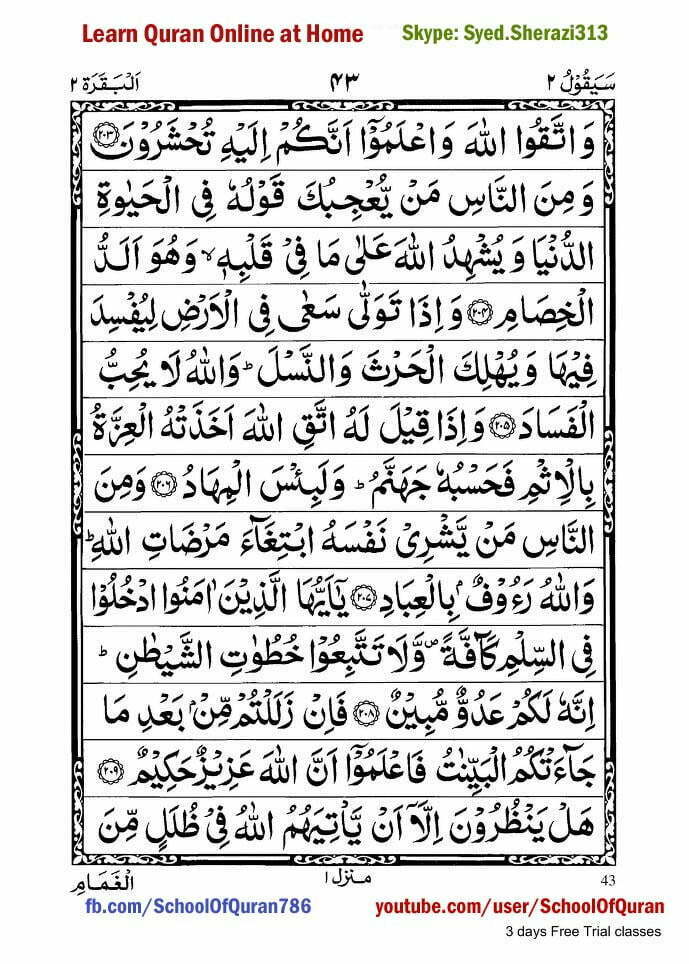 Learn Quran Online at Home Skype: Syed.Sherazi313
سَيَقُوْلُ ٢ ٤٣ اَلْبَقَرَة ٢
وَاتَّقُوا اللّٰهَ وَاعْلَمُوْۤا اَنَّكُمْ اِلَيْهِ تُحْشَرُوْنَ ﴿٢٠٣﴾
وَمِنَ النَّاسِ مَنْ يُّعْجِبُكَ قَوْلُهٗ فِي الْحَيٰوةِ
الدُّنْيَا وَيُشْهِدُ اللّٰهَ عَلٰى مَا فِيْ قَلْبِهٖ ۙ وَهُوَ اَلَدُّ
الْخِصَامِ ﴿٢٠٤﴾ وَاِذَا تَوَلّٰى سَعٰى فِي الْاَرْضِ لِيُفْسِدَ
فِيْهَا وَيُهْلِكَ الْحَرْثَ وَالنَّسْلَ ؕ وَاللّٰهُ لَا يُحِبُّ
الْفَسَادَ ﴿٢٠٥﴾ وَاِذَا قِيْلَ لَهُ اتَّقِ اللّٰهَ اَخَذَتْهُ الْعِزَّةُ
بِالْاِثْمِ فَحَسْبُهٗ جَهَنَّمُ ؕ وَلَبِئْسَ الْمِهَادُ ﴿٢٠٦﴾ وَمِنَ
النَّاسِ مَنْ يَّشْرِيْ نَفْسَهُ ابْتِغَآءَ مَرْضَاتِ اللّٰهِ ؕ
وَاللّٰهُ رَءُوْفٌۢ بِالْعِبَادِ ﴿٢٠٧﴾ يٰۤاَيُّهَا الَّذِيْنَ اٰمَنُوا ادْخُلُوْا
فِي السِّلْمِ كَآفَّةً ۪ وَّلَا تَتَّبِعُوْا خُطُوٰتِ الشَّيْطٰنِ ؕ
اِنَّهٗ لَكُمْ عَدُوٌّ مُّبِيْنٌ ﴿٢٠٨﴾ فَاِنْ زَلَلْتُمْ مِّنْۢ بَعْدِ مَا
جَآءَتْكُمُ الْبَيِّنٰتُ فَاعْلَمُوْۤا اَنَّ اللّٰهَ عَزِيْزٌ حَكِيْمٌ ﴿٢٠٩﴾
هَلْ يَنْظُرُوْنَ اِلَّاۤ اَنْ يَّاْتِيَهُمُ اللّٰهُ فِيْ ظُلَلٍ مِّنَ
43 منزل ١ الْغَمَامِ
fb.com/SchoolOfQuran786 youtube.com/user/SchoolOfQuran
3 days Free Trial classes